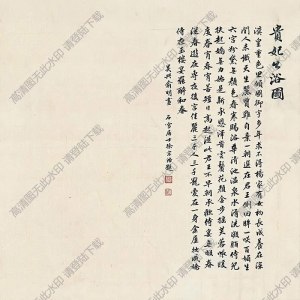 貴妃出浴圖
漢皇重色思傾國御宇多年求不得楊家有女初長成養在深
閨人未識天生麗質難自棄一朝選在君王側回眸一笑百媚生
六宮粉黛無顏色春寒賜浴華清池溫泉水滑洗凝脂侍兒
扶起嬌無力始是新承恩澤時雲鬢花顏金步搖芙蓉帳暖
度春宵春宵苦短日高起從此君王不早朝承歡侍宴無閒暇
春從春遊夜專夜後宮佳麗三千人三千寵愛在一身金屋妝成嬌
侍夜玉樓宴罷醉和春
吳興俞明畫 石雪居士徐宗浩題
高清图无此水印